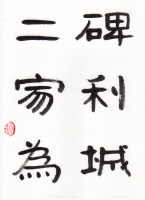 碑利城
二家為